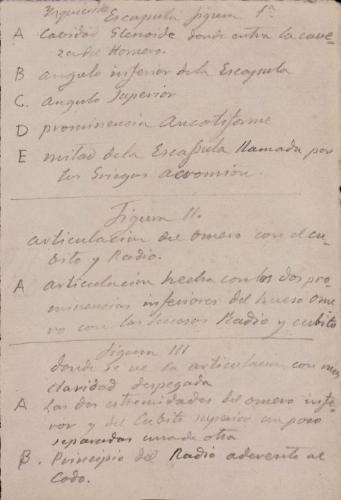 Yzquierda Escapula figura 1ª
A Cabidad Glenoide donde entra la cave=
za del Homero.
B angulo inferior de la Escapula
C. Angulo Superior
D prominencia Ancotiforme
E mitad de la Escapula llamada por
los Griegos acromion.
Figura II.
articulacion del omero con el cu-
bito y Radio.
A articulación hecha con los dos pro=
minencias inferiores del hueso ome
ro con los huesos Radio y cubito
figura III
donde se ve la articulacion con mas
claridad despegada
A Las dos estremidades del omero infe-
rior y del Cubito superior un poco
separadas una de otra
B. Principio del Radio aderente al
Codo.